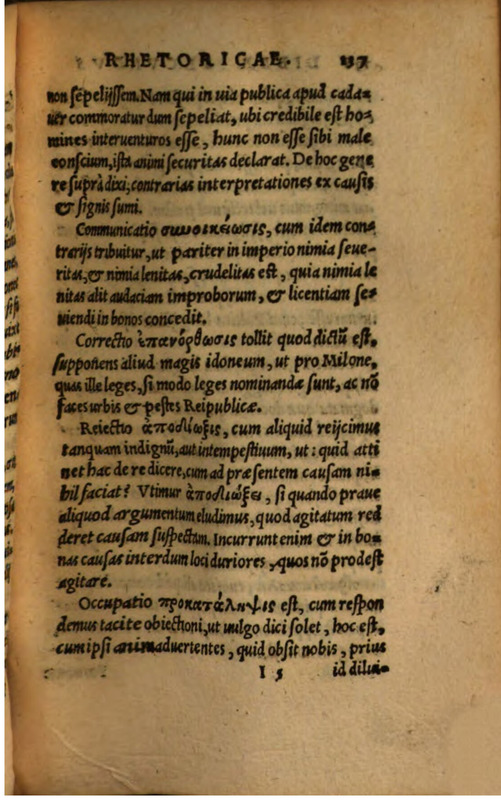 RHETORICAE. 137
non sepelijssem. Nam qui in uia publica apud cada-
uer commoratur dum sepeliat, ubi credibile est ho-
mines interuenturos esse, hunc non esse sibi male
conscium, ista animi securitas declarat. De hoc gene
re suprà dixi, contrarias interpretationes ex causis
& signis sumi.
Communicatio συνοικείωσις, cum idem con-
trarijs tribuitur, ut pariter in imperio nimia seue-
ritas, & nimia lenitas, crudelitas est, quia nimia le
nitas alit audaciam improborum, & licentiam sæ-
uiendi in bonos concedit.
Correctio ἐπανόρθωσις tollit quod dictū est,
supponens aliud magis idoneum, ut pro Milone,
quas ille leges, si modo leges nominandæ sunt, ac nō
faces urbis & pestes Reipublicæ.
Reiectio ἀποδίωξις, cum aliquid reijcimus
tanquam indignū, aut intempestiuum, ut: quid atti
net hac de re dicere, cum ad præsentem causam ni-
hil faciat? Vtimur ἀποδιώξει, si quando praue
aliquod argumentum eludimus, quod agitatum red
deret causam suspectam. Incurrunt enim & in bo-
nas causas interdum loci duriores, quos nō prodest
agitare.
Occupatio προκατάληψις est, cum respon
demus tacite obiectioni, ut uulgo dici solet, hoc est,
cum ipsi animaduertentes, quid obsit nobis, prius
I 5 id dilui-